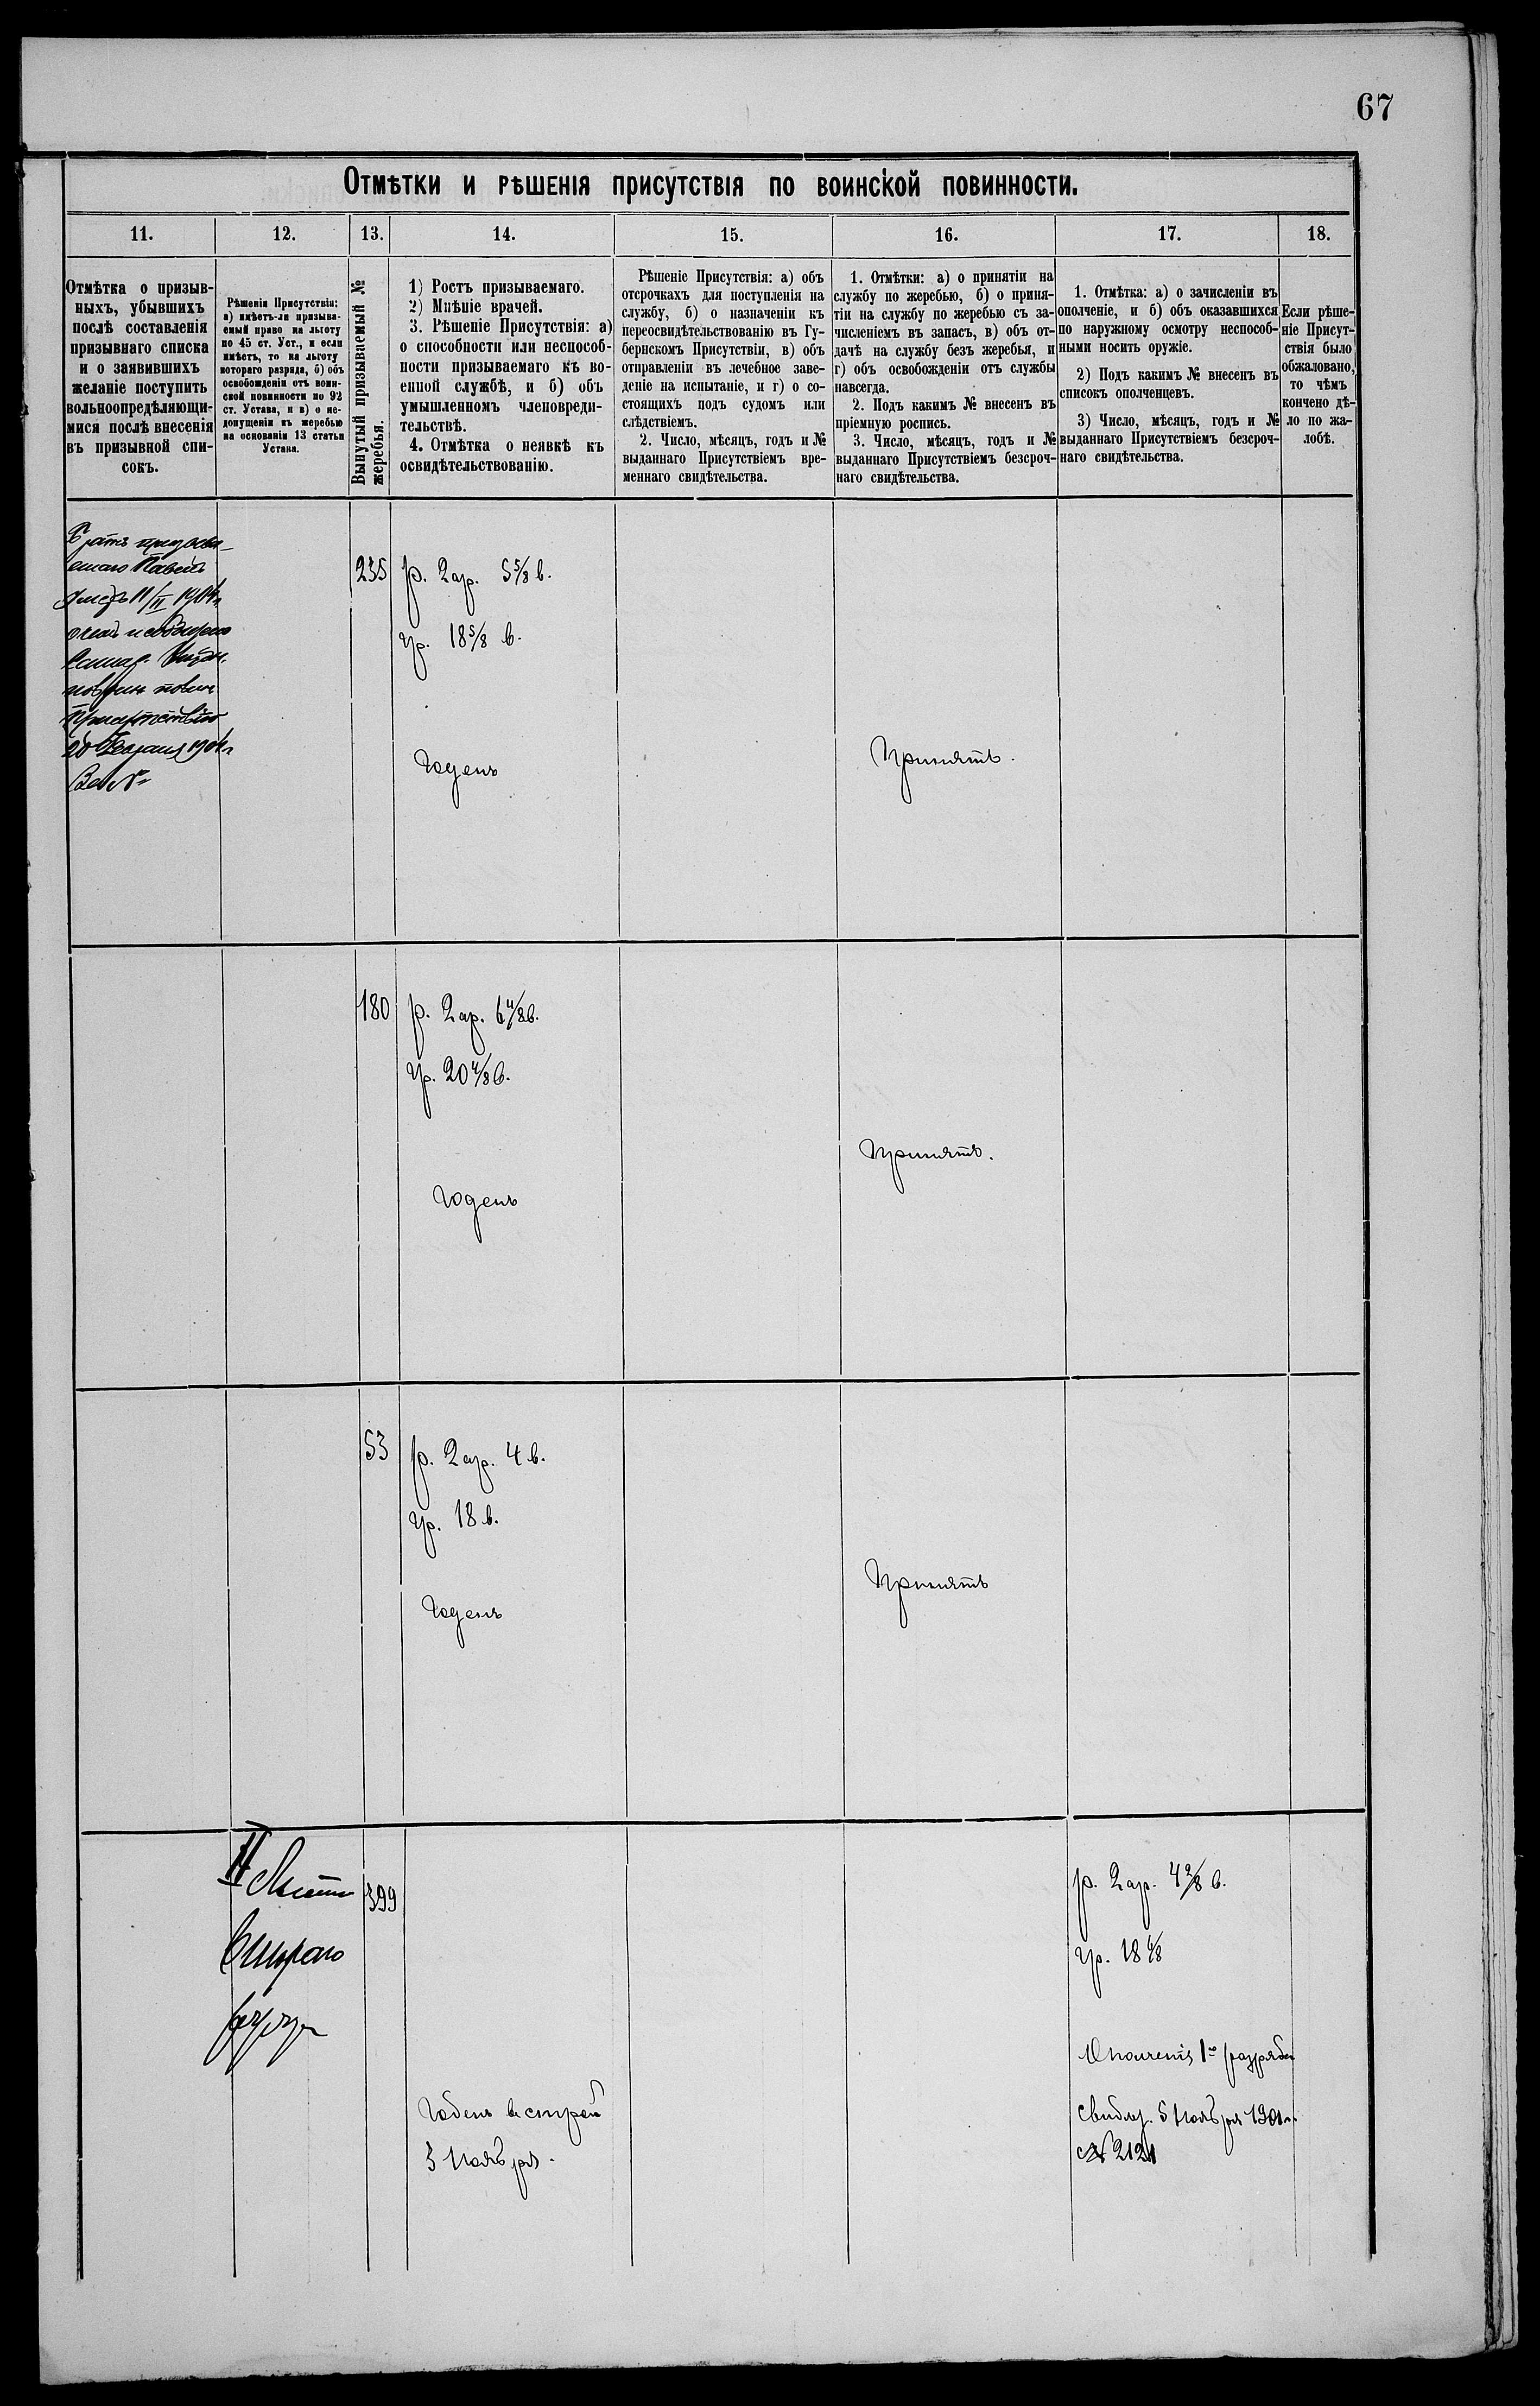 67
Отмѣтки и рѣшенія присутствія по воинской повинности.
11. 12. 13. 14. 15. 16. 17. 18.
Отмѣтка о призыв-
ныхъ, убывшихъ
послѣ составленія
призывнаго списка
и о заявившихъ
желаніе поступить
вольноопредѣляющи-
мися послѣ внесенія
въ призывной спи-
сокъ.
Рѣшенія Присутствія:
а) имѣетъ-ли призыва-
емый право на льготу
по 45 ст. Уст., и если
имѣетъ, то на льготу
котораго разряда, б) объ
освобожденіи отъ воин-
ской повинности по 92
ст. Устава, и в) о не-
допущеніи къ жеребью
на основаніи 13 статьи
Устава.
Вынутый призываемый №
жеребья.
1) Ростъ призываемаго.
2) Мнѣніе врачей.
3. Рѣшеніе Присутствія: а)
о способности или неспособ-
ности призываемаго къ во-
енной службѣ, и б) объ
умышленномъ членовреди-
тельствѣ.
4. Отмѣтка о неявкѣ къ
освидѣтельствованію.
Рѣшеніе Присутствія: а) объ
отсрочкахъ для поступленія на
службу, б) о назначеніи къ
переосвидѣтельствованію въ Гу-
бернскомъ Присутствіи, в) объ
отправленіи въ лечебное заве-
деніе на испытаніе, и г) о со-
стоящихъ подъ судомъ или
слѣдствіемъ.
2. Число, мѣсяцъ, годъ и №
выданнаго Присутствіемъ вре-
меннаго свидѣтельства.
1. Отмѣтки: а) о принятіи на
службу по жеребью, б) о приня-
тіи на службу по жеребью съ за-
численіемъ въ запасъ, в) объ от-
дачѣ на службу безъ жеребья, и
г) объ освобожденіи отъ службы
навсегда.
2. Подъ какимъ № внесенъ въ
пріемную роспись.
3. Число, мѣсяцъ, годъ и №
выданнаго Присутствіемъ безсроч-
наго свидѣтельства.
1. Отмѣтка: а) о зачисленіи въ
ополченіе, и б) объ оказавшихся
по наружному осмотру неспособ-
ными носить оружіе.
2) Подъ какимъ № внесенъ въ
списокъ ополченцевъ.
3) Число, мѣсяцъ, годъ и №
выданнаго Присутствіемъ безсроч-
наго свидѣтельства.
Если рѣше-
ніе Присут-
ствія было
обжаловано,
то чѣмъ
кончено дѣ-
ло по жа-
лобѣ.
Братъ призыва-
емаго Павелъ
11/II 1904 г.
Присутствію
20 Февраля 1904 г.
За №
235
р. 2 ар. 5 5/8 в.
гр. 18 5/8 в.
Годенъ
Принятъ.
180
р. 2 ар. 6 4/8 в.
гр. 20 4/8 в.
Годенъ
Принятъ.
53
р. 2 ар. 4 в.
гр. 18 в.
Годенъ
Принятъ
II
399
Годенъ въ строй
5 Ноября.
р. 2 ар. 4 2/8 в.
гр. 18 4/8
Ополченія 1го разряда
5 Ноября
№ 2121